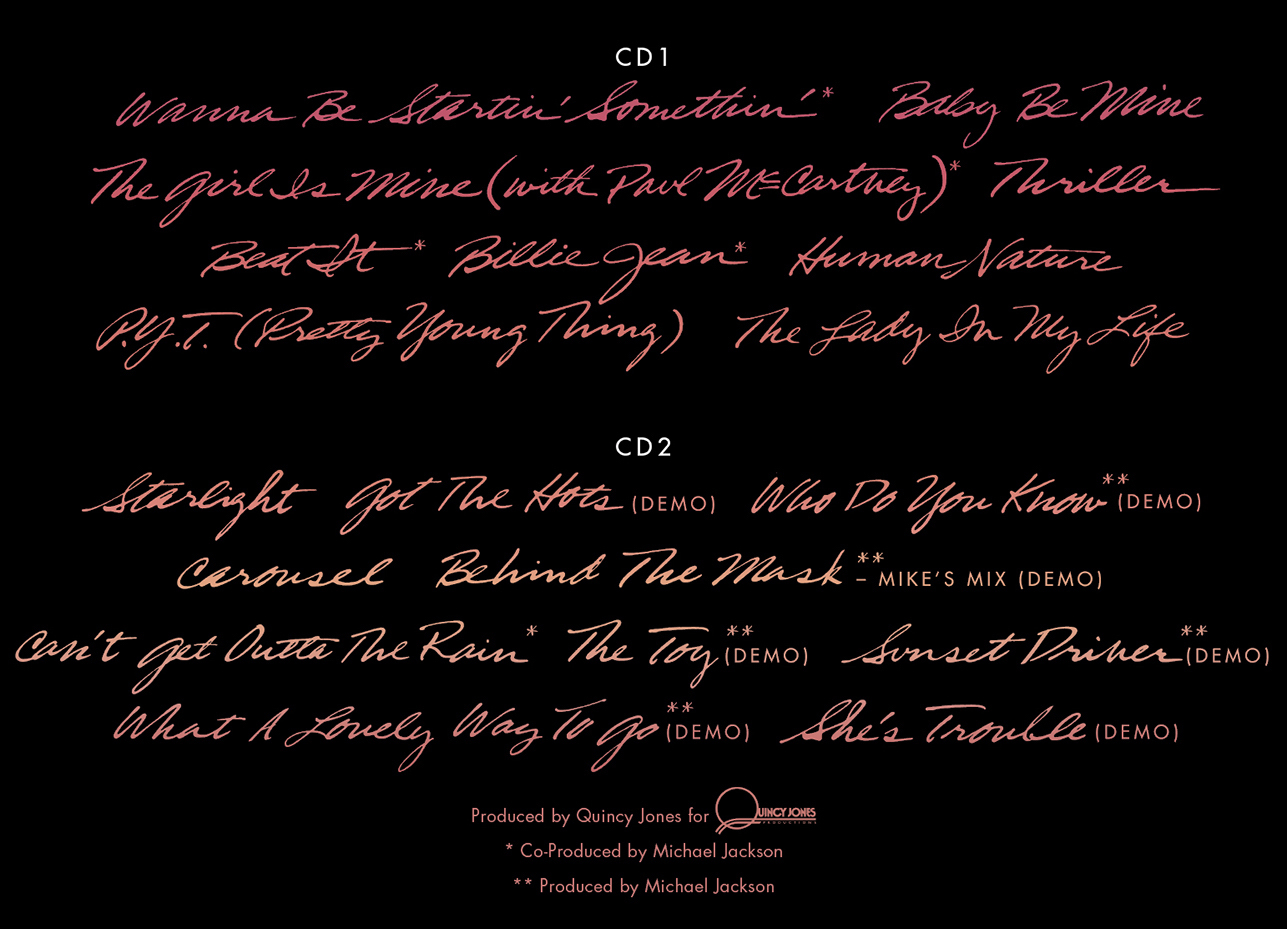 CD1
Wanna Be Startin' Somethin'* Baby Be Mine
The Girl Is Mine (with Paul McCartney)* Thriller
Beat It* Billie Jean* Human Nature
P.Y.T. (Pretty Young Thing) The Lady In My Life
CD2
Starlight Got The Hots (DEMO) Who Do You Know** (DEMO)
Carousel Behind The Mask** – MIKE'S MIX (DEMO)
Can't Get Outta The Rain* The Toy** (DEMO) Sunset Driver** (DEMO)
What A Lovely Way To Go** (DEMO) She's Trouble (DEMO)
Produced by Quincy Jones for QUINCY JONES PRODUCTIONS
* Co-Produced by Michael Jackson
** Produced by Michael Jackson